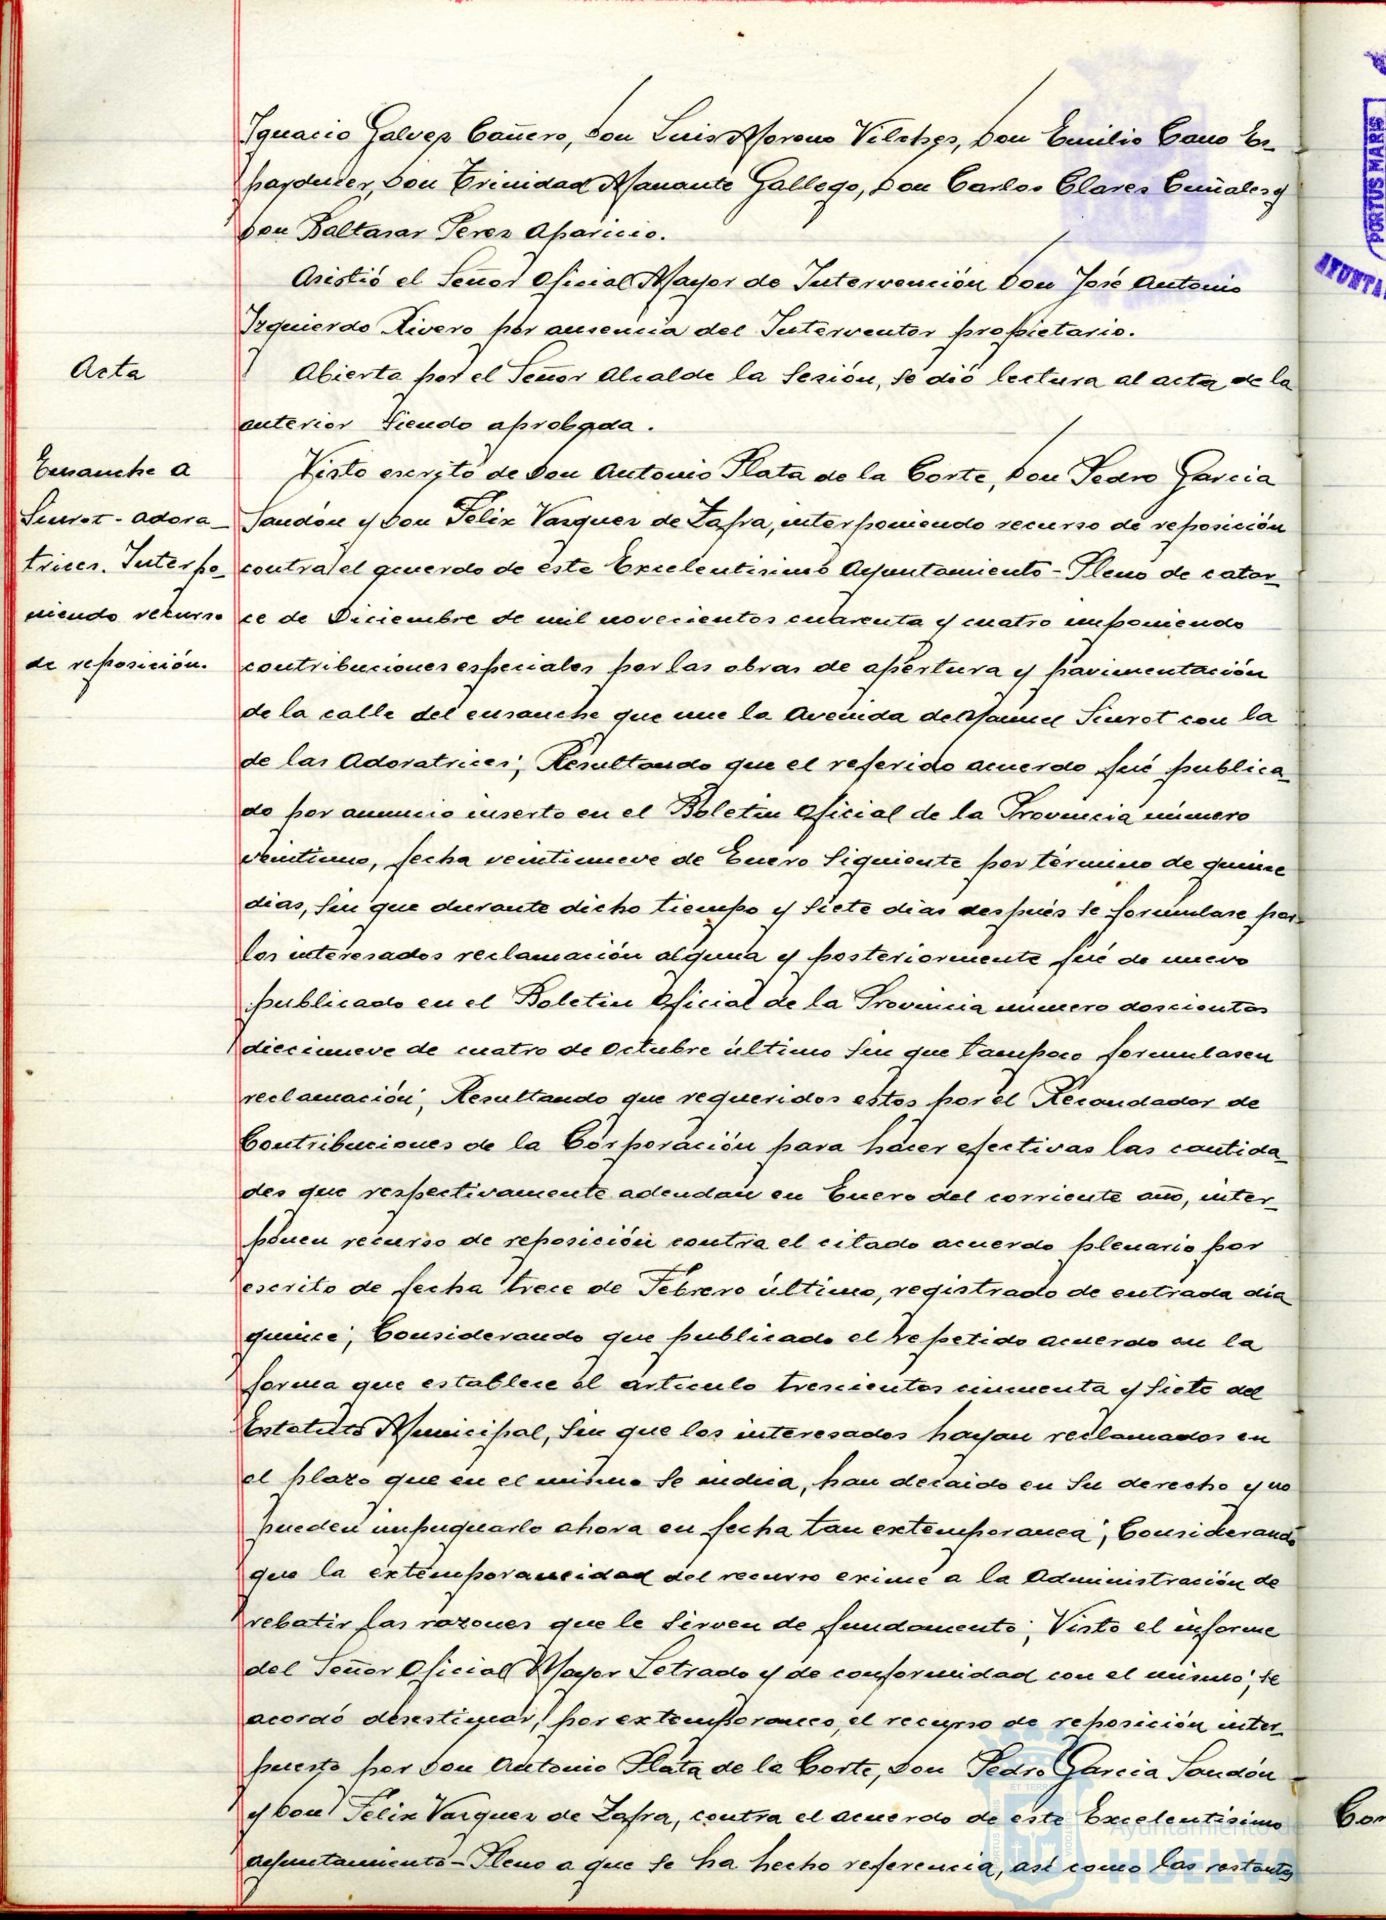 Ignacio Galvez Cañero, Don Luis Moreno Vilches, Don Emilio Cano Es-
parducer, Don Trinidad Manante Gallego, Don Carlos Clares Cuñales y
Don Baltasar Perez Aparicio.
Asistió el Señor Oficial Mayor de Intervención Don José Antonio
Izquierdo Rivero por ausencia del Interventor propietario.
Acta
Abierta por el Señor Alcalde la Sesión, se dió lectura al acta de la
anterior siendo aprobada.
Ensanche a
Siurot-Adora-
trices. Interpo-
niendo recurso
de reposición.
Visto escrito de Don Antonio Plata de la Corte, Don Pedro Garcia
Sandón y Don Felix Vazquez de Zafra, interponiendo recurso de reposición
contra el acuerdo de este Excelentisimo Ayuntamiento-Pleno de cator-
ce de Diciembre de mil novecientos cuarenta y cuatro imponiendo
contribuciones especiales por las obras de apertura y pavimentación
de la calle del ensanche que une la Avenida de Manuel Siurot con la
de las Adoratrices; Resultando que el referido acuerdo fué publica-
do por anuncio inserto en el Boletin Oficial de la Provincia número
veintiuno, fecha veintinueve de Enero siguiente por término de quince
dias, sin que durante dicho tiempo y siete dias después se formulase por
los interesados reclamación alguna y posteriormente fué de nuevo
publicado en el Boletin Oficial de la Provincia número doscientos
diecinueve de cuatro de Octubre último sin que tampoco formulasen
reclamación; Resultando que requeridos estos por el Recaudador de
Contribuciones de la Corporación para hacer efectivas las cantida-
des que respectivamente adeudan en Enero del corriente año, inter-
ponen recurso de reposición contra el citado acuerdo plenario por
escrito de fecha trece de Febrero último, registrado de entrada dia
quince; Considerando que publicado el repetido acuerdo en la
forma que establece el artículo trescientos cincuenta y siete del
Estatuto Municipal, sin que los interesados hayan reclamados en
el plazo que en el mismo se indica, han decaido en su derecho y no
pueden impugnarlo ahora en fecha tan extemporanea; Considerando
que la extemporaneidad del recurso exime a la Administración de
rebatir las razones que le sirven de fundamento; Visto el informe
del Señor Oficial Mayor Letrado y de conformidad con el mismo; se
acordó desestimar, por extemporaneo, el recurso de reposición inter-
puesto por Don Antonio Plata de la Corte, Don Pedro Garcia Sandón
y Don Felix Vazquez de Zafra, contra el acuerdo de este Excelentísimo
Ayuntamiento-Pleno a que se ha hecho referencia, así como las restantes
PORTUS MARIS
AYUNTA
Cor
Ayuntamiento de
HUELVA